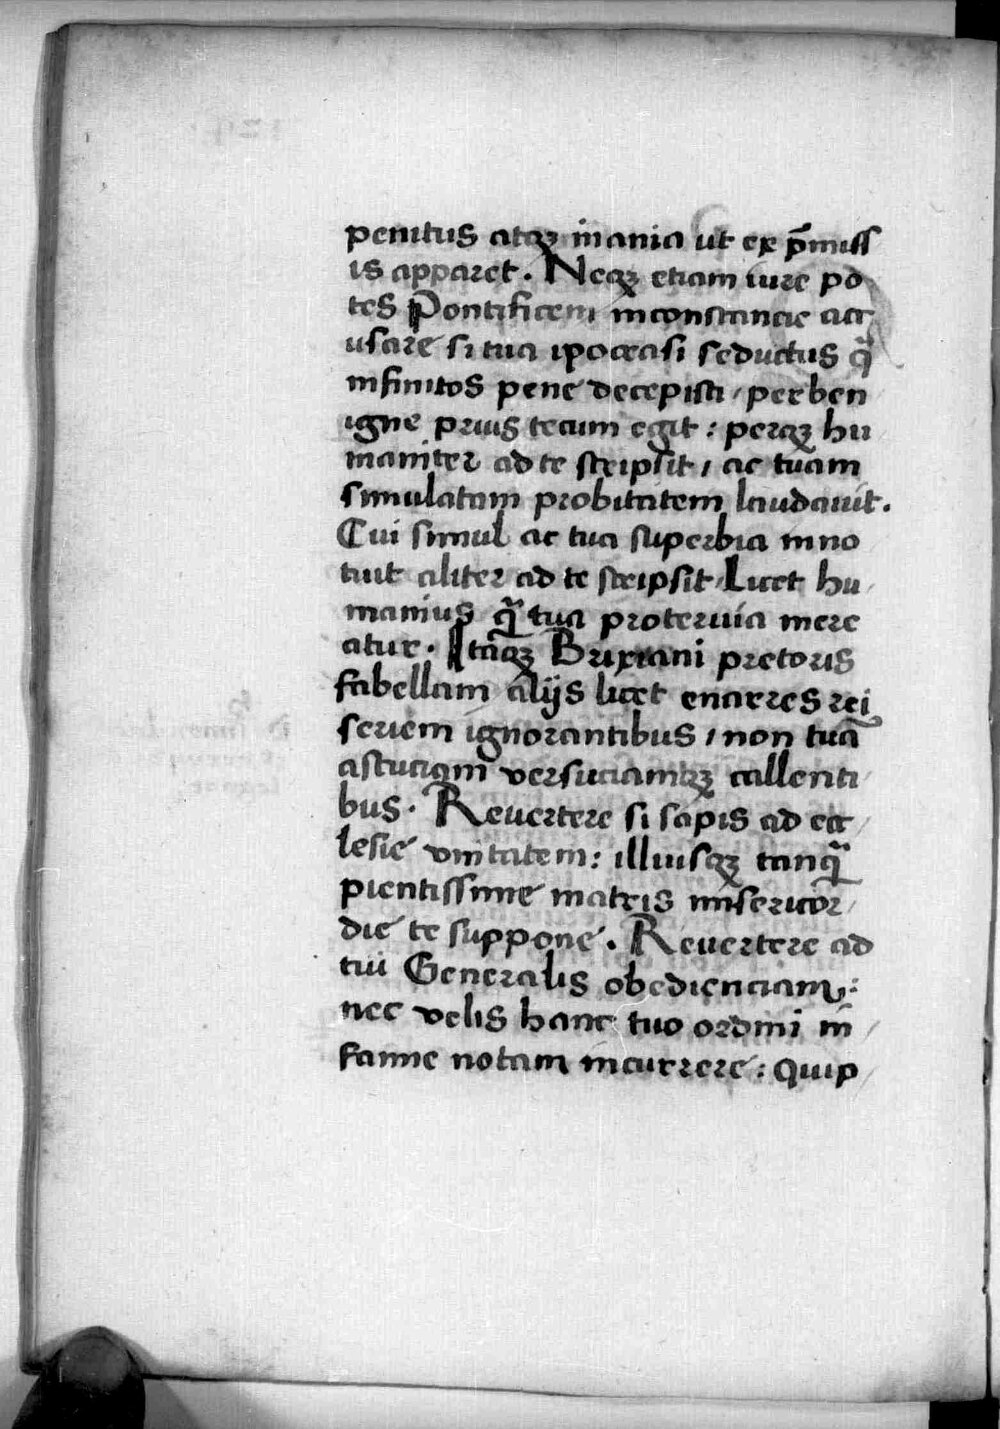 penitus atqꝫ inania ut ex p̄miss
is apparet. Neqꝫ etiam iure po
tes Pontificem inconstancie acc
usare si tua ipocrasi seductus qᷓ
infinitos pene decepisti / perben
igne prius tecum egit: perqꝫ hu
maniter ad te scripsit, ac tuam
simulatam probitatem laudauit.
Cui simul ac tua superbia inno
tuit aliter ad te scripsit Licet hu/
manius qᷓ tua proteruia mere
atur. Itaqꝫ Brixiani pretoris
fabellam alijs licet enarres rei
seriem ignorantibus / non tuā
astuciam versuciamqꝫ callenti/
bus. Reuertere si sapis ad ecc/
lesie vnitatem: illiusqꝫ tanqᷓ
pientissime matris misericor/
die te suppone. Reuertere ad
tui Generalis obedienciam:
nec velis hanc tuo ordini in/
famie notam incurrere: Quip/